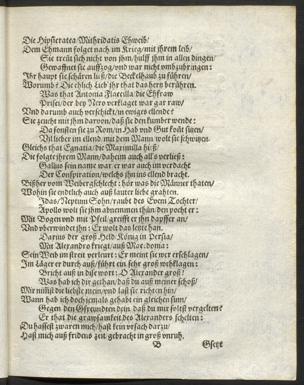 Die Hipsicratea/Mithridatis Eheweib/
Dem Ehmann folget nach im Krieg/mit ihrem leib/
Sie trenit sich nicht von ihm/hülff ihm in allen dingen/
Gewaffnet sie auffzog/und war nicht umbzubringen:
Ihr haupt sie schären ließ/die Beckelhaub zu führen/
Worumb? Die ehlich Lieb' ihr that das hertz berühren.
Was that Antonia Flaccilla die Ehfraw
Prisci/der bey Nero verklaget war gar raw/
Und darumb auch verschickt/in ewigs ellend?
Sie zeucht mit ihm darvon/daß sie den kunder wende:
Da sonsten sie zu Rom/in Hab und Gut köñt sitzen/
Vil lieber im ellend mit dem Mann wolt sie schwitzen.
Gleichs that Egnatia/die Maximilla hieß/
Die folgte ihrem Mann/daheim auch all's verließ:
Gallus sein name war/er war auch im verdacht
Der Conspiration/welchs ihn ins ellend bracht.
Bißher vom Weibergschlecht: hör was die Männer thaten/
Wohin sie endlich auch auß lauter liebe grahten.
Idas/Neptuni Sohn/raubt des Eveni Tochter/
Apollo wolt sie ihm abnemmen/thun den pocht er:
Mit Bogen und mit Pfeil greifft er ihn dapffer an/
Und uberwindt ihn: Er wolt das lente han.
Darius der groß Held/König in Persia/
Mit Alexandro kriegt/auß Macedonia:
Sein Weib im streit verleurt: Er meint sie wer erschlagen/
Im Läger er durch auß/führt ein sehr groß wehklagen:
Bricht auß in dise wort: O Alexander groß!
Was hab ich dir gethan/daß du auß meiner schoß/
Mir nimst die liebste mein/und last sie richten hin/
Wann hab ich doch jemals gehabt ein gleichen sinn/
Gegen den Gfreundten dein/daß du mir solst vergelten?
Er that die grawsamkeit des Alexanders schelten:
Du hassest zwaren mich/hast kein ursach darzu/
Hast mich auß fridens zeit gebracht in groß unruh.
B
Gsetzt